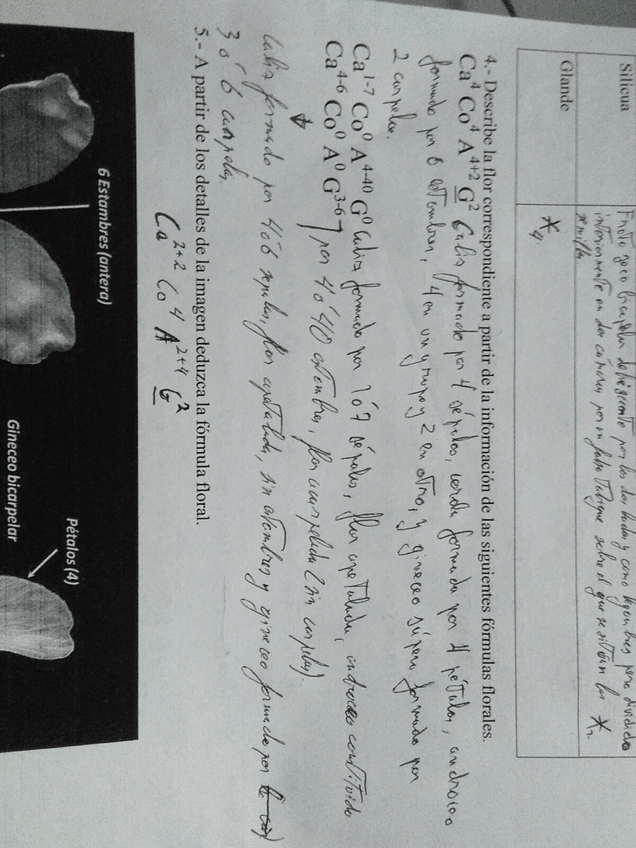 Silicua
Fruto seco bicarpelar dehiscente por las dos lados y como legumbres pero dividido
interiormente en dos cámaras por un falso tabique sobre el que se sitúan las
semillas *₂
Glande
*₄
4.- Describe la flor correspondiente a partir de la información de las siguientes fórmulas florales.
Ca⁴ Co⁴ A⁴⁺² G² Caliz formado por 4 sépalos, corola formada por 4 pétalos, androceo
formado por 6 estambres, 4 en un grupo y 2 en otro, y gineceo súpero formado por
2 carpelos.
Ca¹⁻⁷ Co⁰ A⁴⁻⁴⁰ G⁰ Caliz formado por 1 ó 7 sépalos, flor apetalada, androceo constituido
Ca⁴⁻⁶ Co⁰ A⁰ G³⁻⁶ por 4 ó 40 estambres, flor acarpelada (sin carpelos).
Caliz formado por 4 ó 6 sépalos, flor apetalada, sin estambres y gineceo formado por
3 ó 6 carpelos.
5.- A partir de los detalles de la imagen deduzca la fórmula floral.
Ca²⁺² Co⁴ A²⁺⁴ G²
6 Estambres (antera)
Pétalos (4)
Gineceo bicarpelar